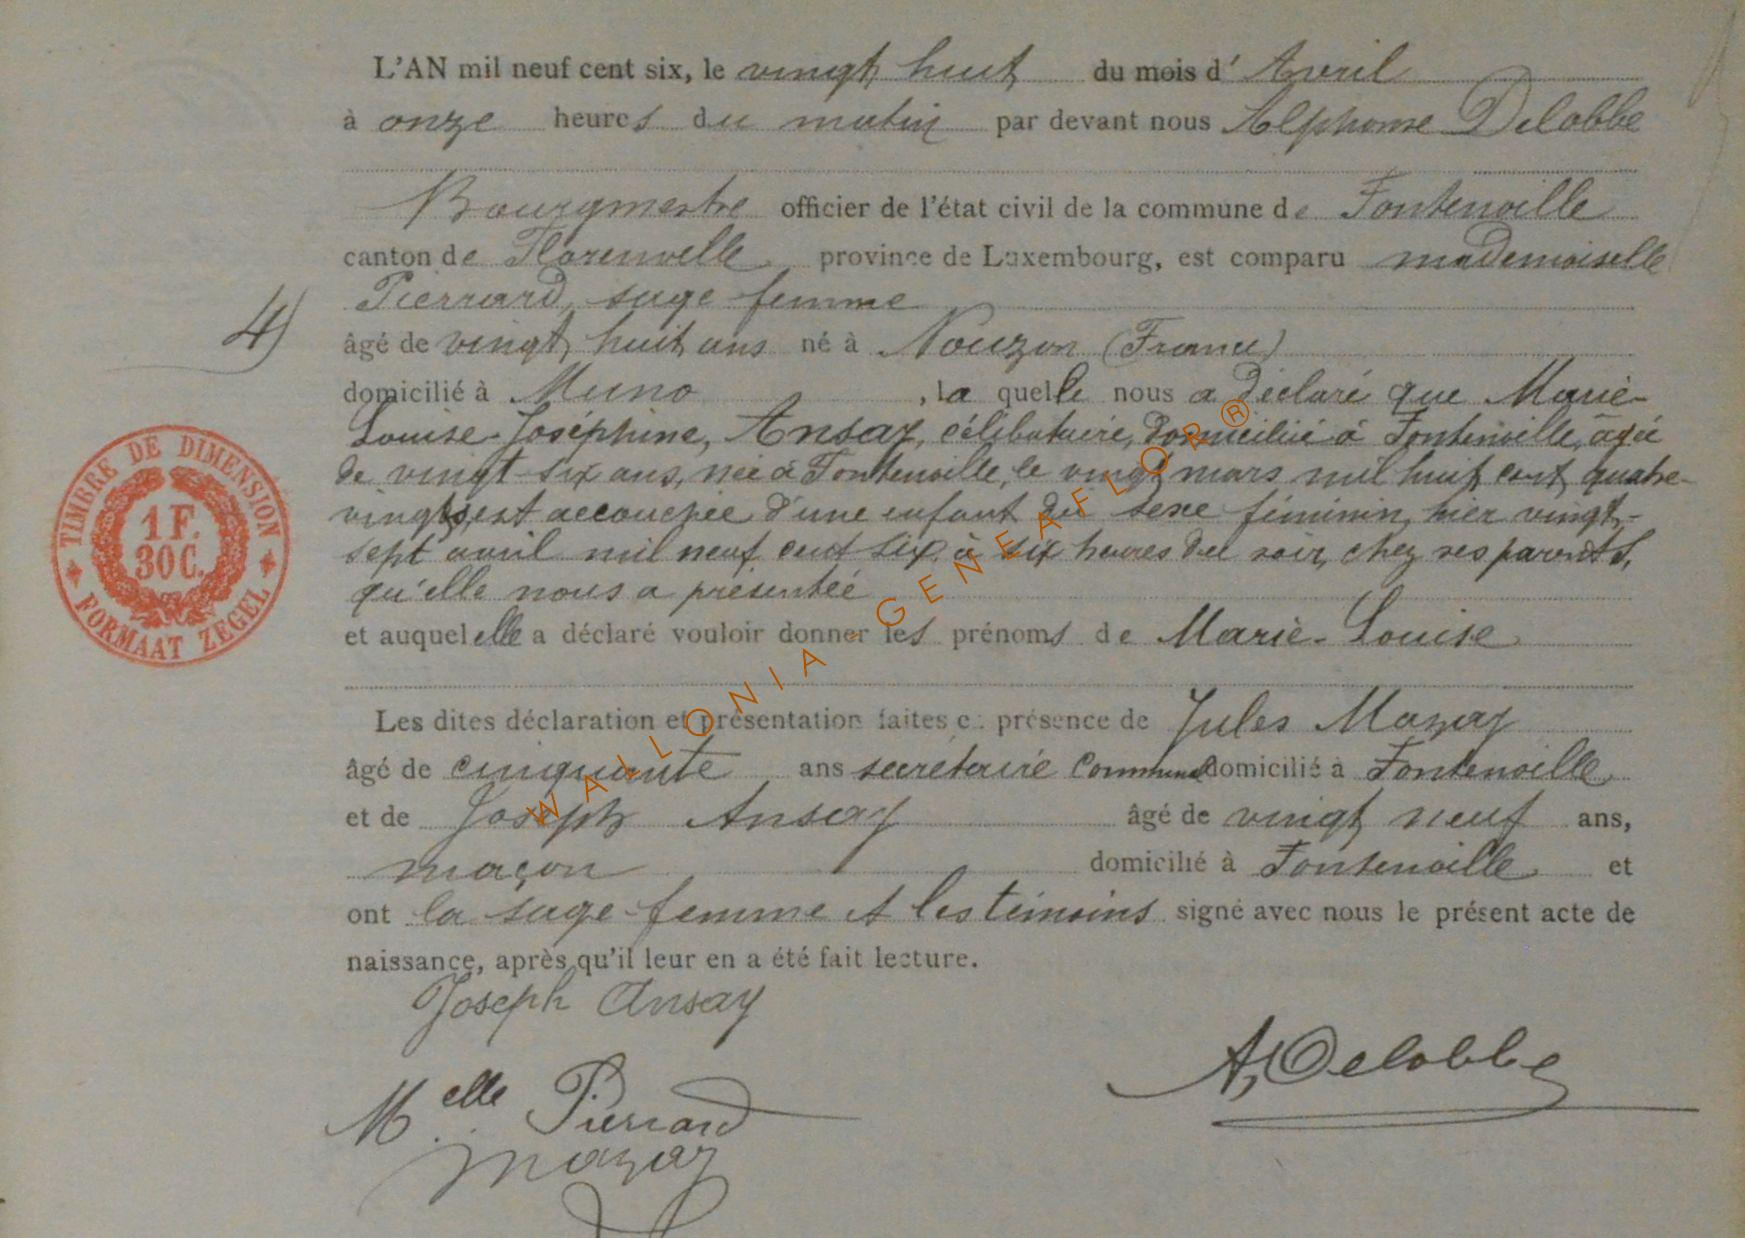 L'AN mil neuf cent six, le vingt huit du mois d' Avril
à onze heures du matin par devant nous Alphonse Delobbe
Bourgmestre officier de l'état civil de la commune de Fontenoille
canton de Florenville province de Luxembourg, est comparu mademoiselle
Pierrard, sage femme
4)
âgé de vingt huit ans né à Nouzon (France)
domicilié à Muno, la quelle nous a déclaré que Marie-
Louise-Joséphine, Ansay, célibataire, domiciliée à Fontenoille, agée
de vingt-six ans, née à Fontenoille, le vingt mars mil huit cent quatre-
vingts, est accouchée d'une enfant du sexe féminin, hier vingt-
sept avril mil neuf cent six, à six heures du soir, chez ses parents,
qu'elle nous a présentée
et auquel elle a déclaré vouloir donner les prénoms de Marie-Louise
Les dites déclaration et présentation faites en présence de Jules Mazay
âgé de cinquante ans secrétaire communal domicilié à Fontenoille
et de Joseph Ansay âgé de vingt neuf ans,
maçon domicilié à Fontenoille et
ont la sage-femme et les témoins signé avec nous le présent acte de
naissance, après qu'il leur en a été fait lecture.
Joseph Ansay
A, Delobbe
Melle Pierrard
Mazay
TIMBRE DE DIMENSION
1 F.
30 C.
FORMAAT ZEGEL
WALLONIA GENEAFLOR®